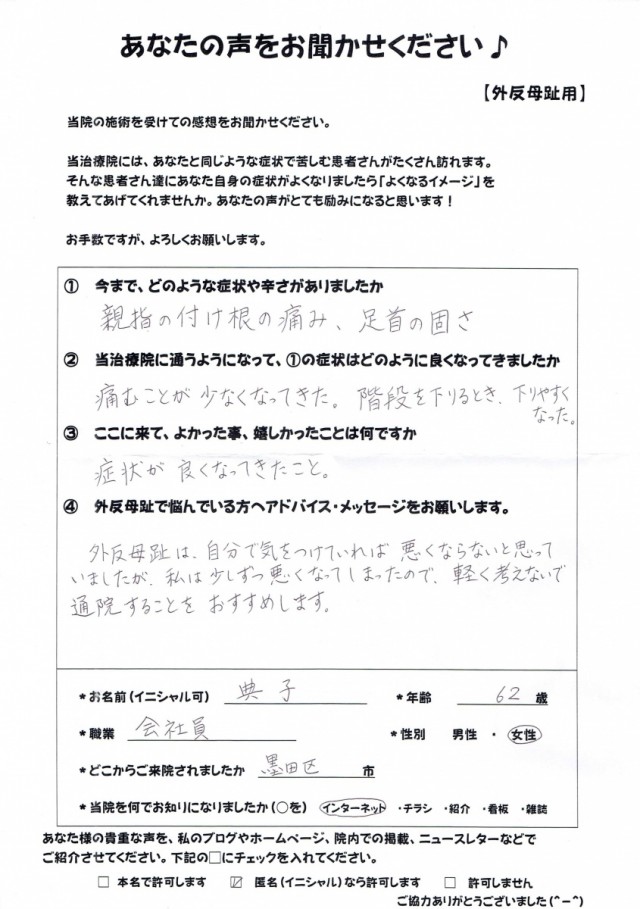 あなたの声をお聞かせください♪
【外反母趾用】
当院の施術を受けての感想をお聞かせください。
当治療院には、あなたと同じような症状で苦しむ患者さんがたくさん訪れます。
そんな患者さん達にあなた自身の症状がよくなりましたら「よくなるイメージ」を
教えてあげてくれませんか。あなたの声がとても励みになると思います！
お手数ですが、よろしくお願いします。
① 今まで、どのような症状や辛さがありましたか
親指の付け根の痛み、足首の固さ
② 当治療院に通うようになって、①の症状はどのように良くなってきましたか
痛むことが少なくなってきた。階段を下りるとき、下りやすく
なった。
③ ここに来て、よかった事、嬉しかったことは何ですか
症状が良くなってきたこと。
④ 外反母趾で悩んでいる方へアドバイス・メッセージをお願いします。
外反母趾は、自分で気をつけていれば悪くならないと思って
いましたが、私は少しずつ悪くなってしまったので、軽く考えないで
通院することをおすすめします。
＊お名前（イニシャル可） 典子 ＊年齢 62 歳
＊職業 会社員 ＊性別 男性 ・ 女性
＊どこからご来院されましたか 墨田区 市
＊当院を何でお知りになりましたか（○を） インターネット ・チラシ ・紹介 ・看板 ・雑誌
あなた様の貴重な声を、私のブログやホームページ、院内での掲載、ニュースレターなどで
ご紹介させてください。下記の□にチェックを入れてください。
□ 本名で許可します ☑ 匿名（イニシャル）なら許可します □ 許可しません
ご協力ありがとうございました(^－^)